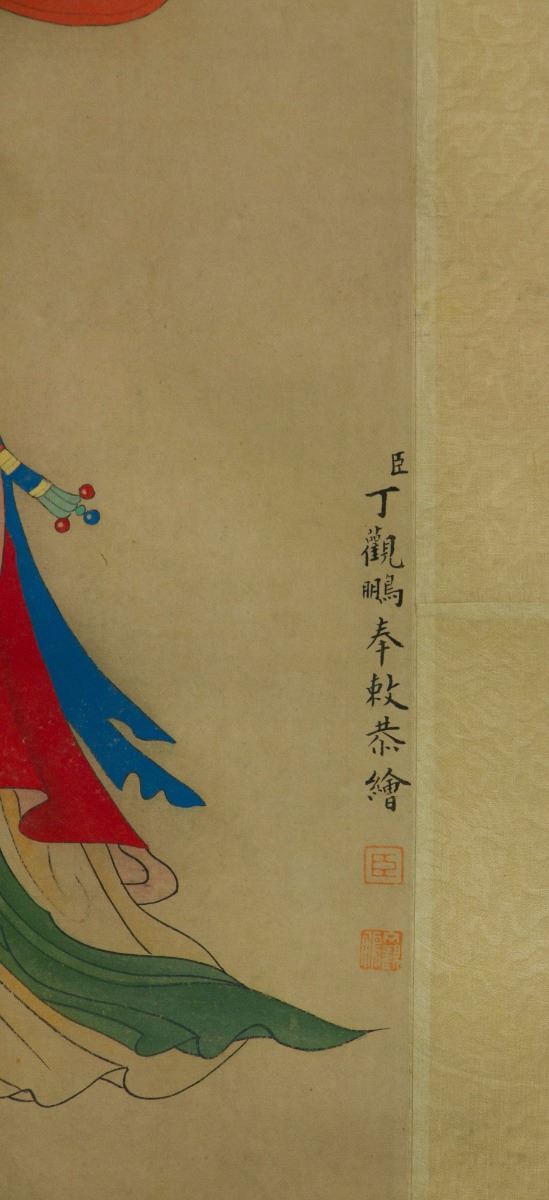 臣丁觀鵬奉敕恭繪
臣